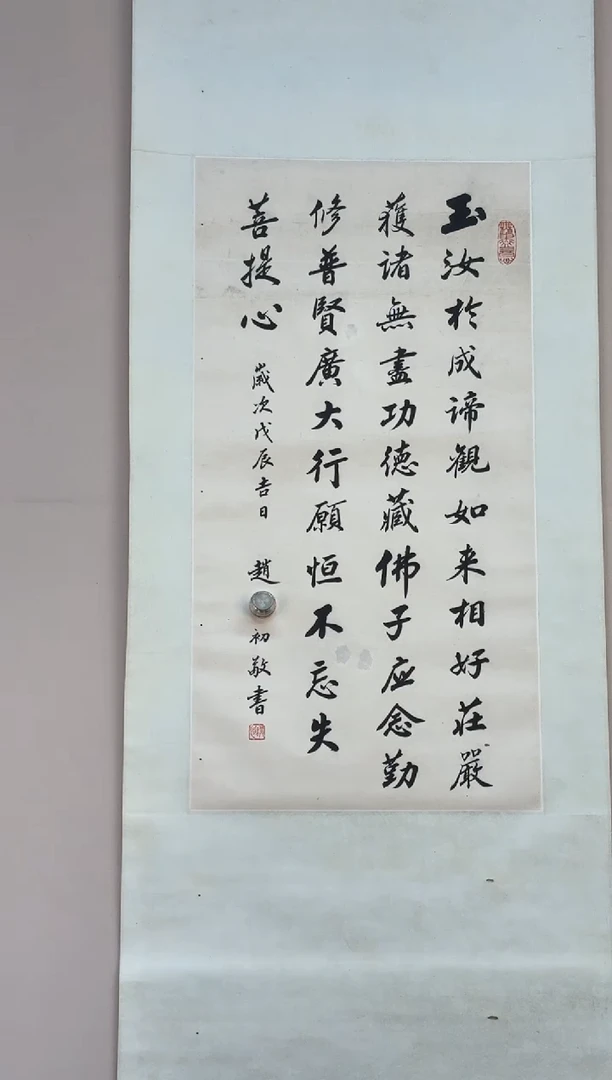 玉汝於成諦觀如来相好莊嚴
獲諸無盡功德藏佛子应念勤
修普賢廣大行願恒不忘失
菩提心
歲次戊辰吉日
趙
初敬書